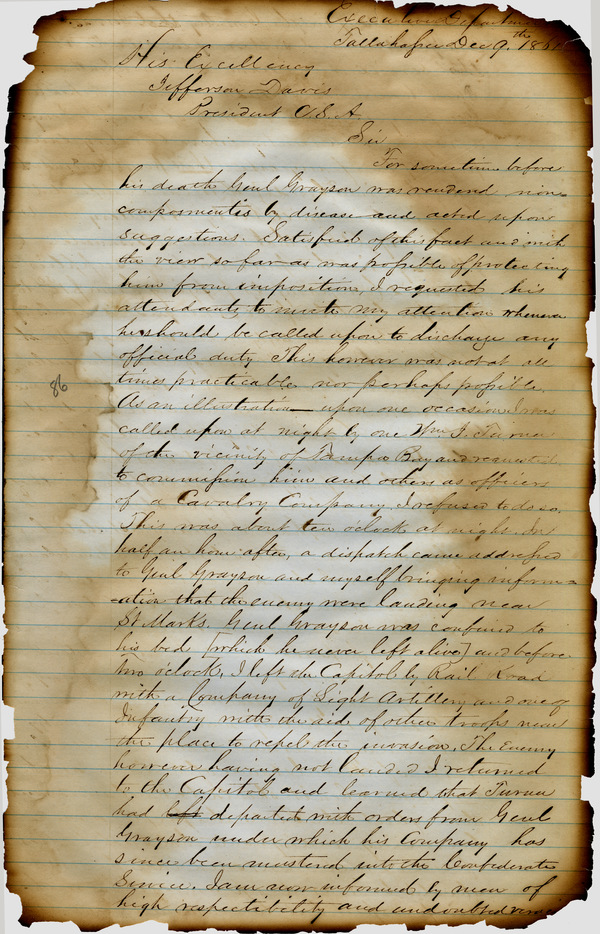 Executive Department
Tallahassee Dec 9th 1861
His Excellency
Jefferson Davis
President C.S.A.
Sir
For sometime before
his death Genl Grayson was rendered non-
composmentis by disease and acted upon
suggestions. Satisfied of this fact and with
the view so far as was possible of protecting
him from imposition, I requested his
attendants to invite my attention whenever
he should be called upon to discharge any
official duty. This however was not at all
times practicable nor perhaps possible.
As an illustration— upon one occasion I was
called upon at night by one Wm. J. Turner
of the vicinity of Tampa Bay and requested
to commission him and others as officers
of a Cavalry Company. I refused to do so.
This was about ten oclock at night. In
half an hour after, a dispatch came addressed
to Genl Grayson and myself bringing inform=
=ation that the enemy were landing near
St Marks. Genl Grayson was confined to
his bed [which he never left alive] and before
two oclock, I left the Capitol by Rail Road
with a Company of Light Artillery and one of
Infantry with the aid of other troops near
the place to repel the invasion. The Enemy
however having not landed I returned
to the Capitol and learned that Turner
had left departed with orders from Genl
Grayson under which his Company has
since been mustered into the Confederate
Service. I am now informed by men of
high respectibility and undoubted
86